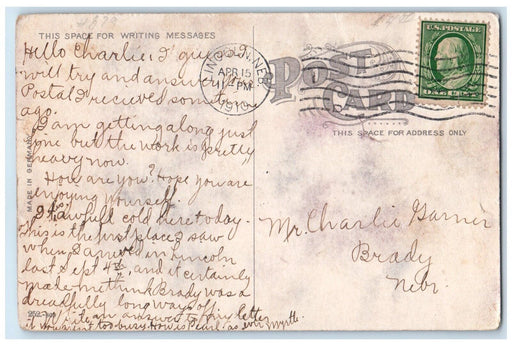 THIS SPACE FOR WRITING MESSAGES
Hello Charlie, I
will try and answer
Postal I recieved some
ago.
I am getting along just
fine but the work is pretty
heavy now.
How are you? Hope you are
enjoying yourself.
It is awfull cold here today.
This is the first place I saw
when I arrived in Lincoln
last Sept 4th, and it certainly
made me think Brady was a
dreadfully long ways off.
Write an answer to my letter
if you aren't too busy. How is Pearl. as ever Myrtle.
MADE IN GERMANY
252
LINCOLN, NEB.
APR 15
PM
1910
POST
CARD
THIS SPACE FOR ADDRESS ONLY
U.S. POSTAGE
ONE CENT
Mr. Charlie Garner
Brady
Nebr.